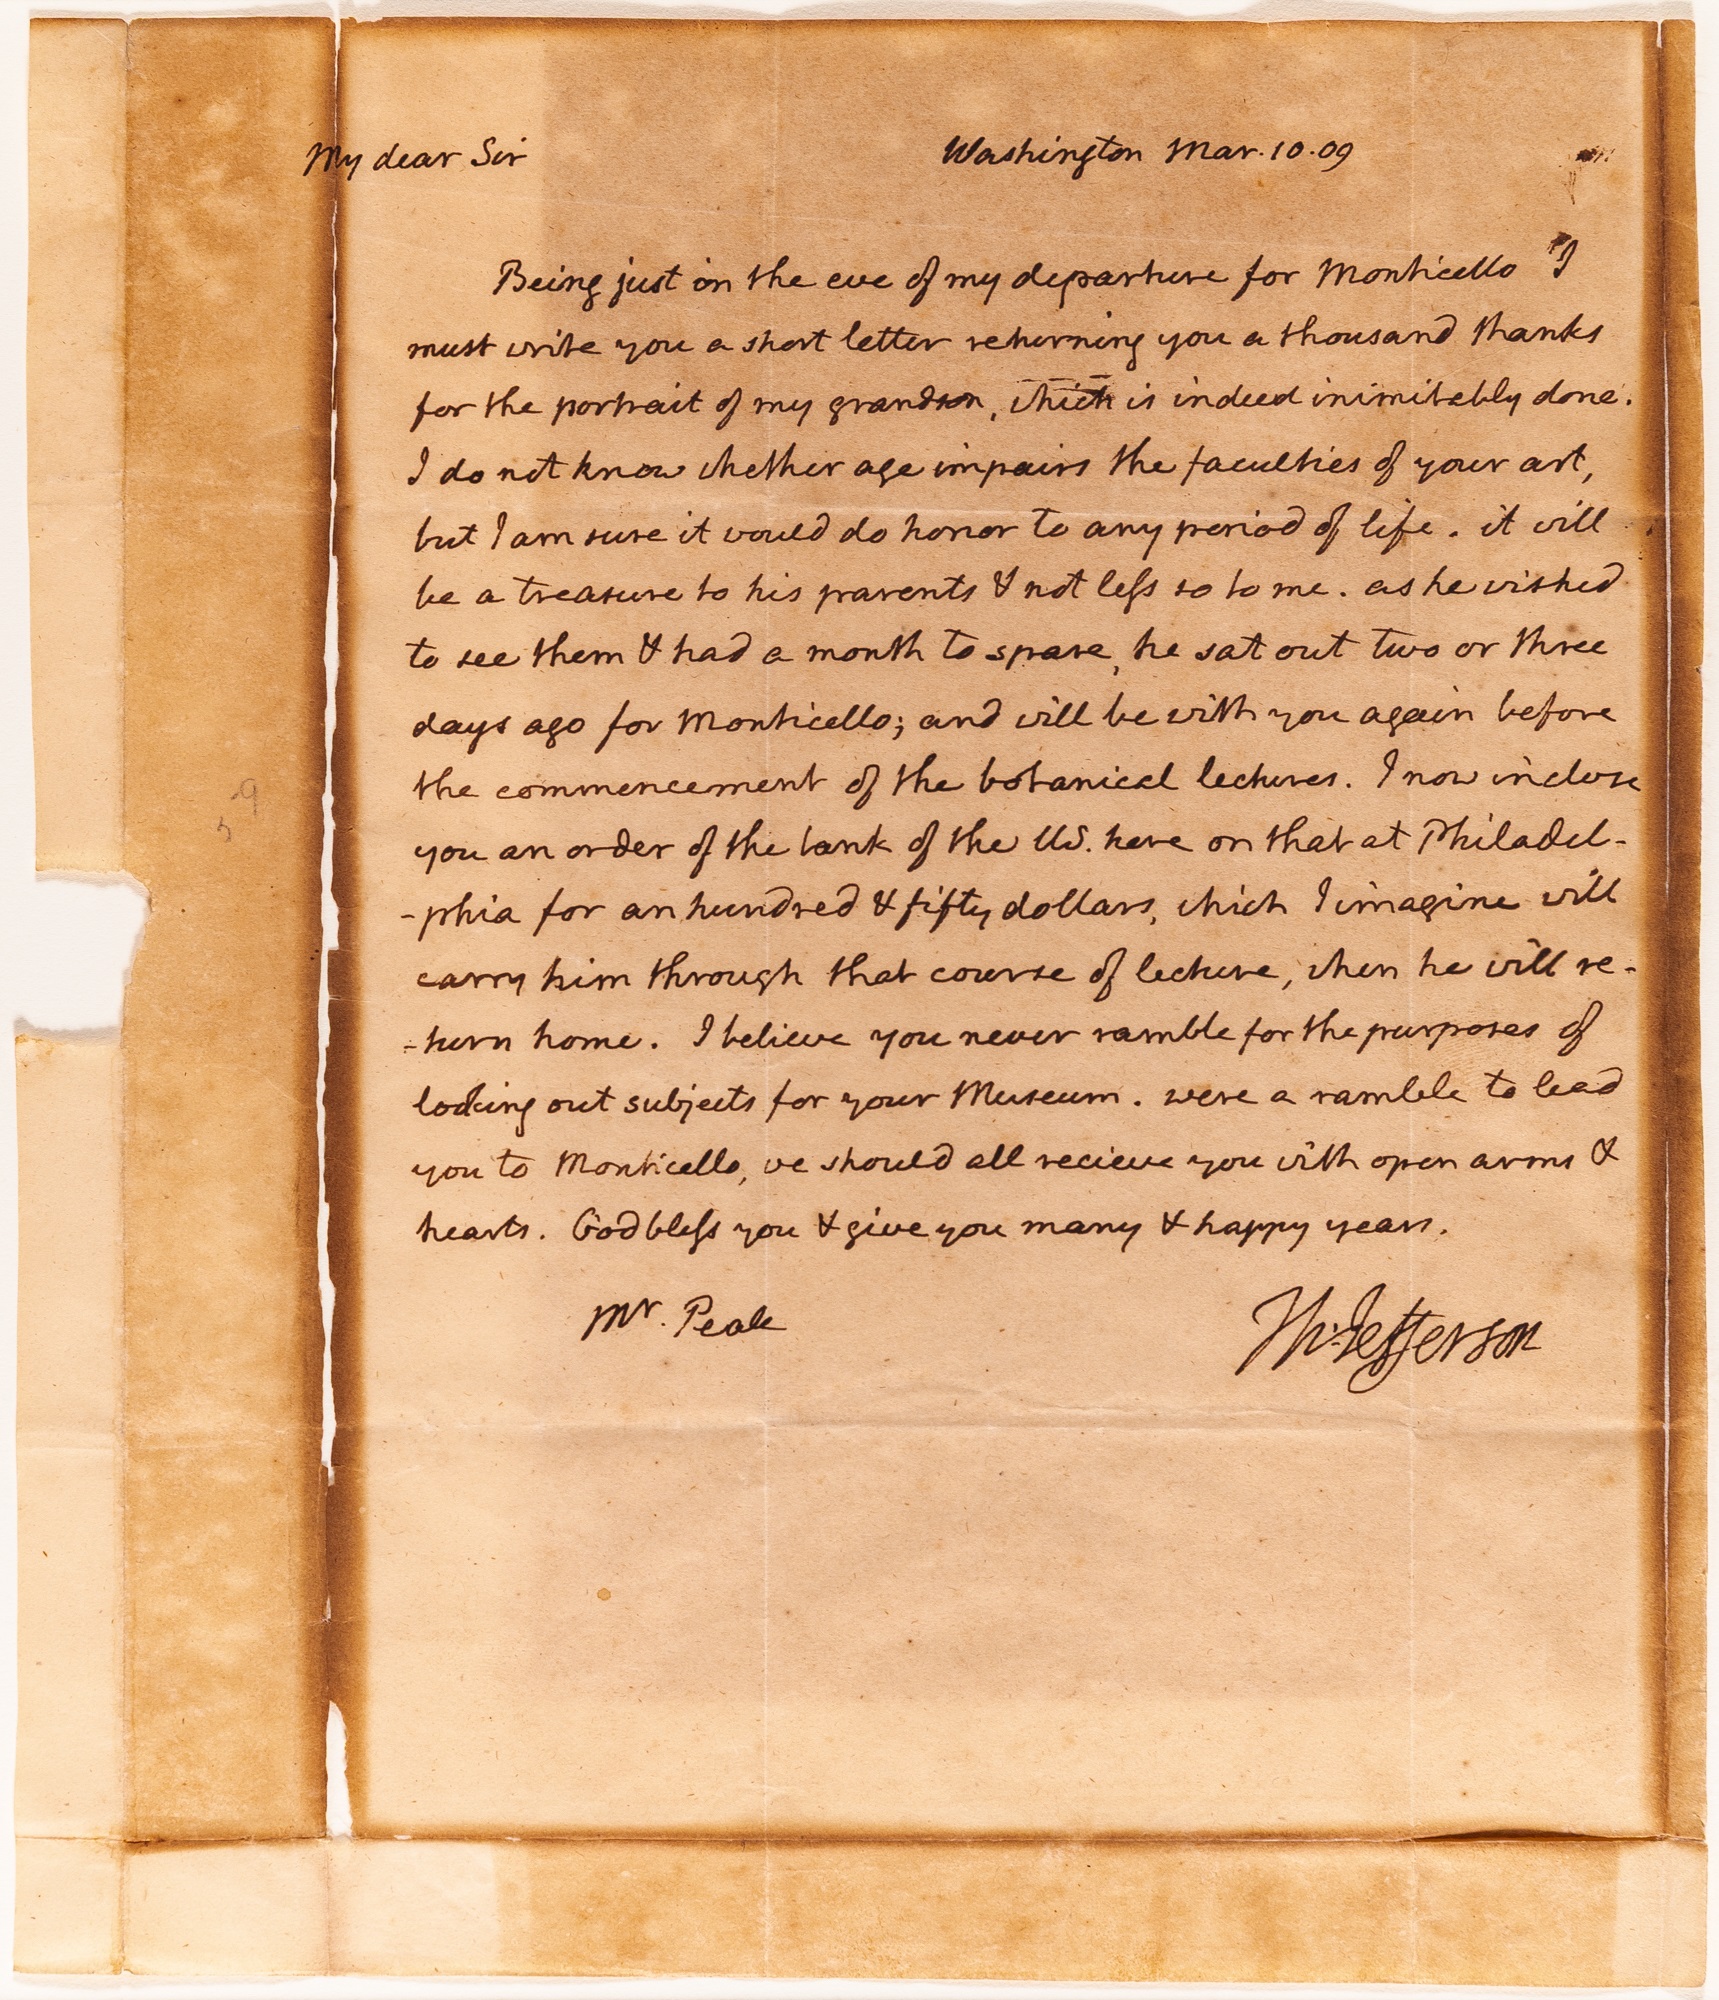 My dear Sir
Washington Mar. 10. 09
Being just on the eve of my departure for Monticello I
must write you a short letter returning you a thousand thanks
for the portrait of my grandson, which is indeed inimitably done.
I do not know whether age impairs the faculties of your art,
but I am sure it would do honor to any period of life. it will
be a treasure to his parents & not less so to me. as he wished
to see them & had a month to spare, he sat out two or three
days ago for Monticello; and will be with you again before
the commencement of the botanical lectures. I now inclose
you an order of the bank of the US. here on that at Philadel-
-phia for an hundred & fifty dollars, which I imagine will
carry him through that course of lecture, when he will re-
-turn home. I believe you never ramble for the purposes of
looking out subjects for your Museum. were a ramble to lead
you to Monticello, we should all recieve you with open arms &
hearts. God bless you & give you many & happy years.
Mr. Peale
Th: Jefferson